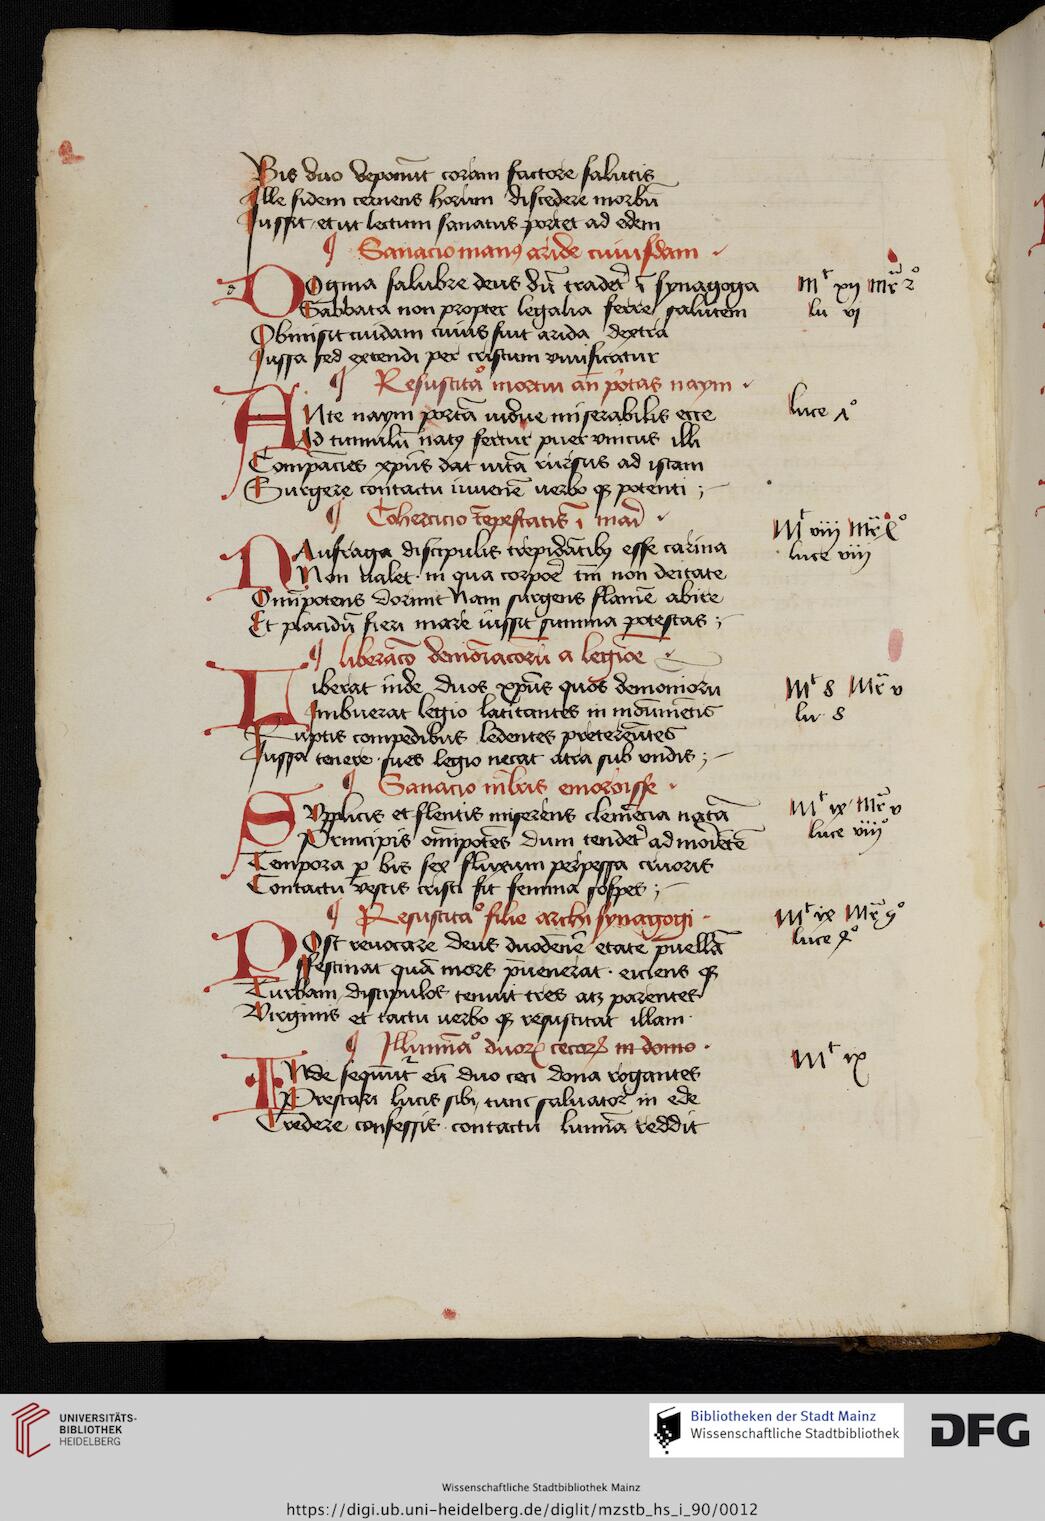 Bis duo deponunt coram factore salutis
Ille fidem cernens horum discedere morbū
Jussit et ut lectum sanatus portet ad edem
¶ Sanacio manꝰ aride cuiusdam
DOgma salubre deus dū tradet̛ ī synagoga
Sabbata non propter legalia ferre salutem
Obmisit cuidam cuius fuit arida dextra
Jussa sed extendi per cristum viuificatur
¶ Resuscitaº mortui an̄ portas naym
ANte naym portā vidue miserabilis ecce
Ad tumulū natꝰ fertur puer vnicus illi
Compaciēs xpūs dat vitā rursus ad istam
Surgere contactu iuuenē verbo qꝫ potenti ;
¶ Cohercicio tēpestatis ī mari
NAufraga discipulis trepidātibꝰ esse carina
Non valet in qua corpore tm̄ non deitate
Omīpotens dormit Nam surgens flamē abire
Et placidū fieri mare iussit summa potestas ;
¶ liberacō demōiacorū a legiōe
LIberat inde duos xpūs quos demoniorū
Imbuerat legio latitantes in monumētis
Ruptis compedibus ledentes pretereūtes
Jussa tenere sues legio necat atra sub vndis ;
¶ Sanacio mlꝛis emoroisse
SVpplicis et flentis miserens clemēcia natā
Principis omīpotēs dum tendet̛ ad moriētē
Tempora ꝑ bis sex fluxum perpessa cruoris
Contactu vestis cristi fit femina sospes ;
¶ Resuscitaº filie archisynagogi
POst reuocare deus duodenē etate puellā
ffestinat quā mors p̄uenerat eiciens qꝫ
Turbam discipulos tenuit tres atꝫ parentes
Virginis et tactu verbo qꝫ resuscitat illam
¶ Illuminaº duoꝝ cecoꝝ in domo
INde sequūt̛ eū duo ceci dona rogantes
Prestari lucis sibi tunc saluator in ede
Credere confessis contactu lumīa reddit
Mᵗ xij Mꝛ̄ 2º
lu vj
luce
Mᵗ viij Mꝛ̄
luce viij
Mᵗ 8 Mꝛ̄ v
lu 8
Mᵗ ix Mꝛ̄ v
luce viijº
Mᵗ ix Mꝛ̄
luce
Mᵗ ix
UNIVERSITÄTS-
BIBLIOTHEK
HEIDELBERG
Bibliotheken der Stadt Mainz
Wissenschaftliche Stadtbibliothek
DFG
Wissenschaftliche Stadtbibliothek Mainz
https://digi.ub.uni-heidelberg.de/diglit/mzstb_hs_i_90/0012